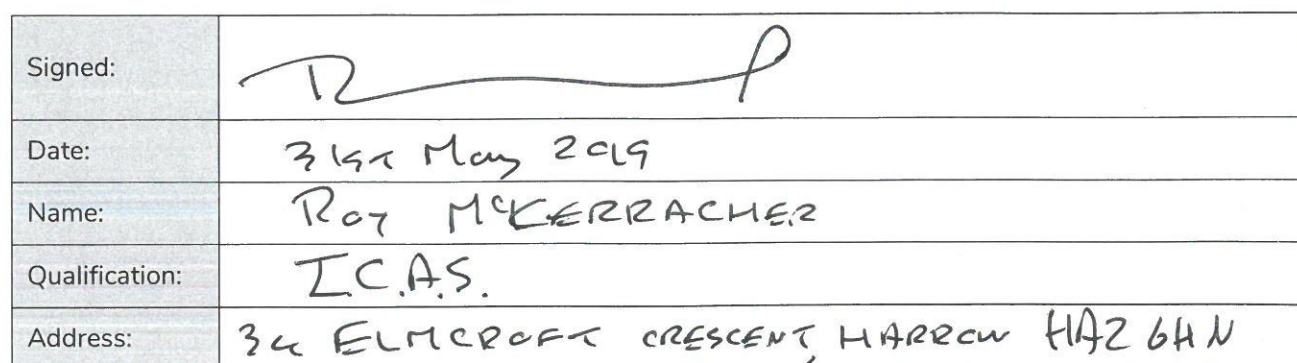 Signed:
Date: 31st May 2019
Name: Roy McKERRACHER
Qualification: I.C.A.S.
Address: ELMCROFT CRESCENT, HARROW HA2 6HN